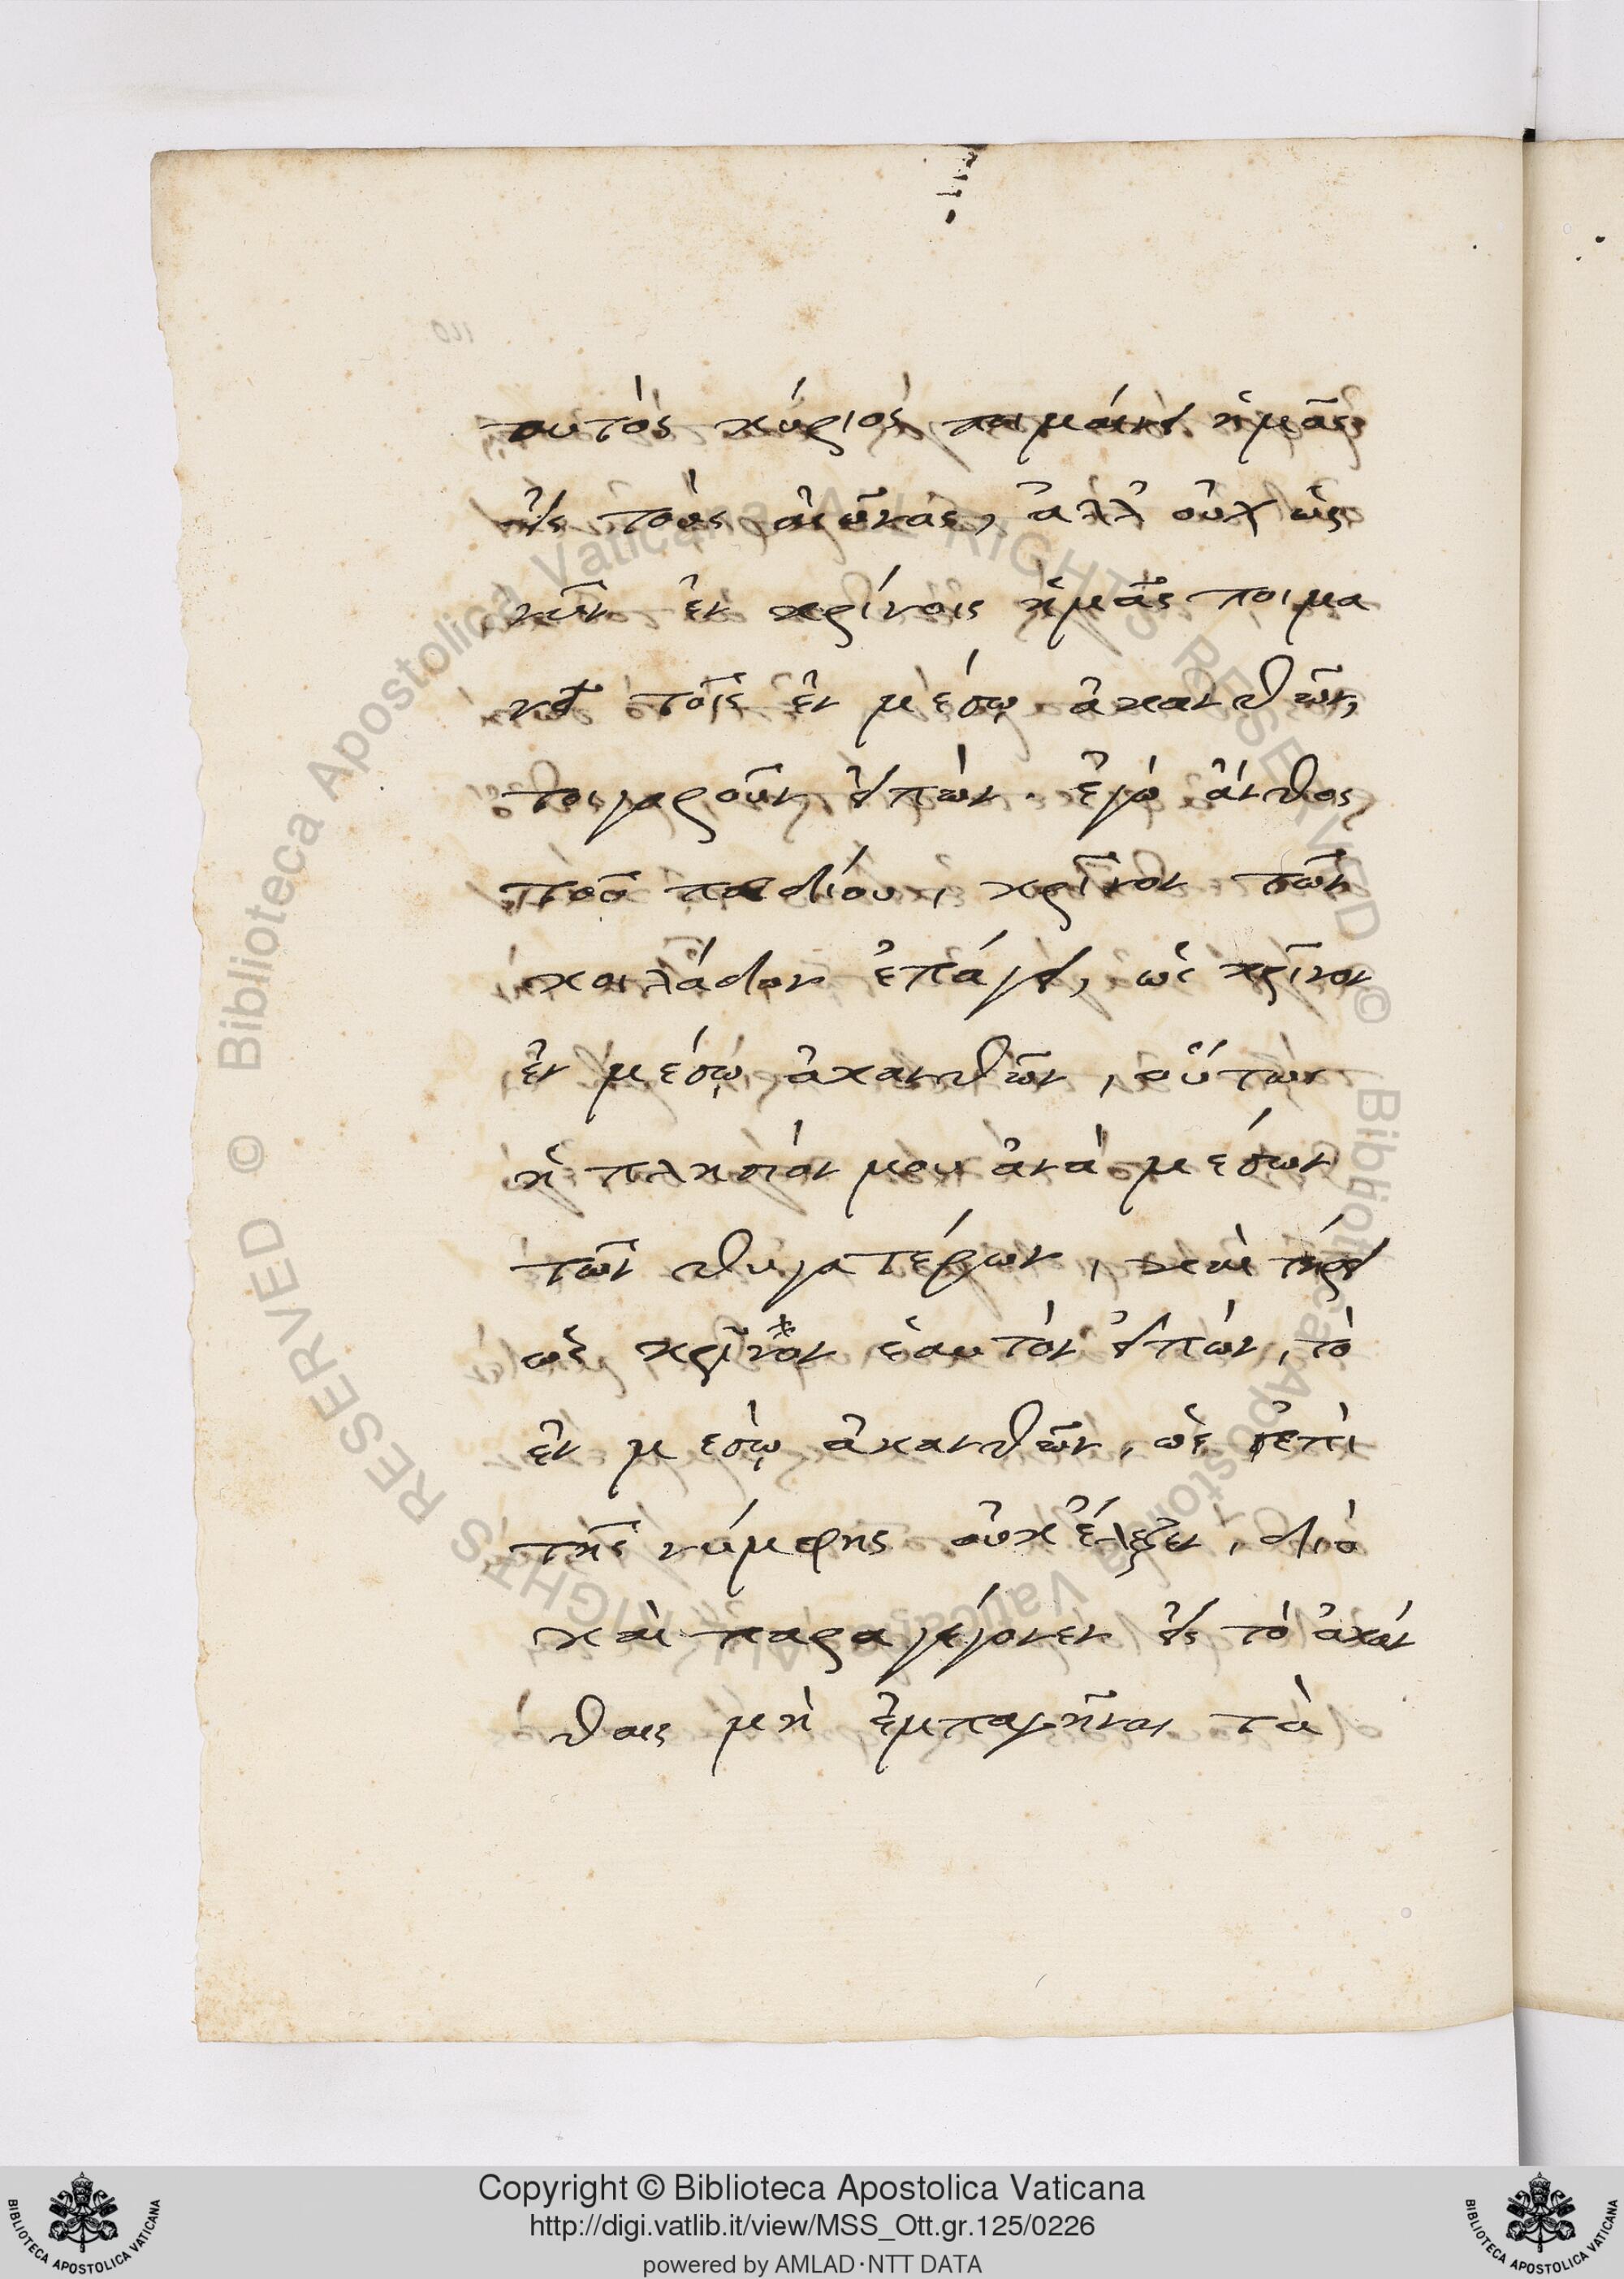 αυτὸς κύριος ποιμαίνει ἡμᾶς
εἰς τοὺς αἰῶνας, ἀλλ' οὐχ ὡς
νῦν ἐν κρίνοις ἡμᾶς ποιμα
νεῖ τοῖς ἐν μέσῳ ἀκανθῶν,
τοιγαροῦν εἰπὼν. ἐγὼ ἄνθος
τοῦ παιδίου, κρῖνον τῶν
κοιλάδων ἐπάγει, ὡς κρῖνον
ἐν μέσῳ ἀκανθῶν, οὕτως
ἡ πλησίον μου ἀνὰ μέσων
τῶν θυγατέρων, καὶ
ὡς κρῖνον ἑαυτὸν εἰπὼν, τὸ
ἐν μεσῳ ἀκανθῶν, ὡς ἐπὶ
τῆς νύμφης οὐκ ἔλεξεν, διὸ
καὶ παραγέγονεν εἰς τὸ ἀκάν
θαις μὴ ἐμπαγῆναι τὰ
Copyright © Biblioteca Apostolica Vaticana
http://digi.vatlib.it/view/MSS_Ott.gr.125/0226
powered by AMLAD·NTT DATA